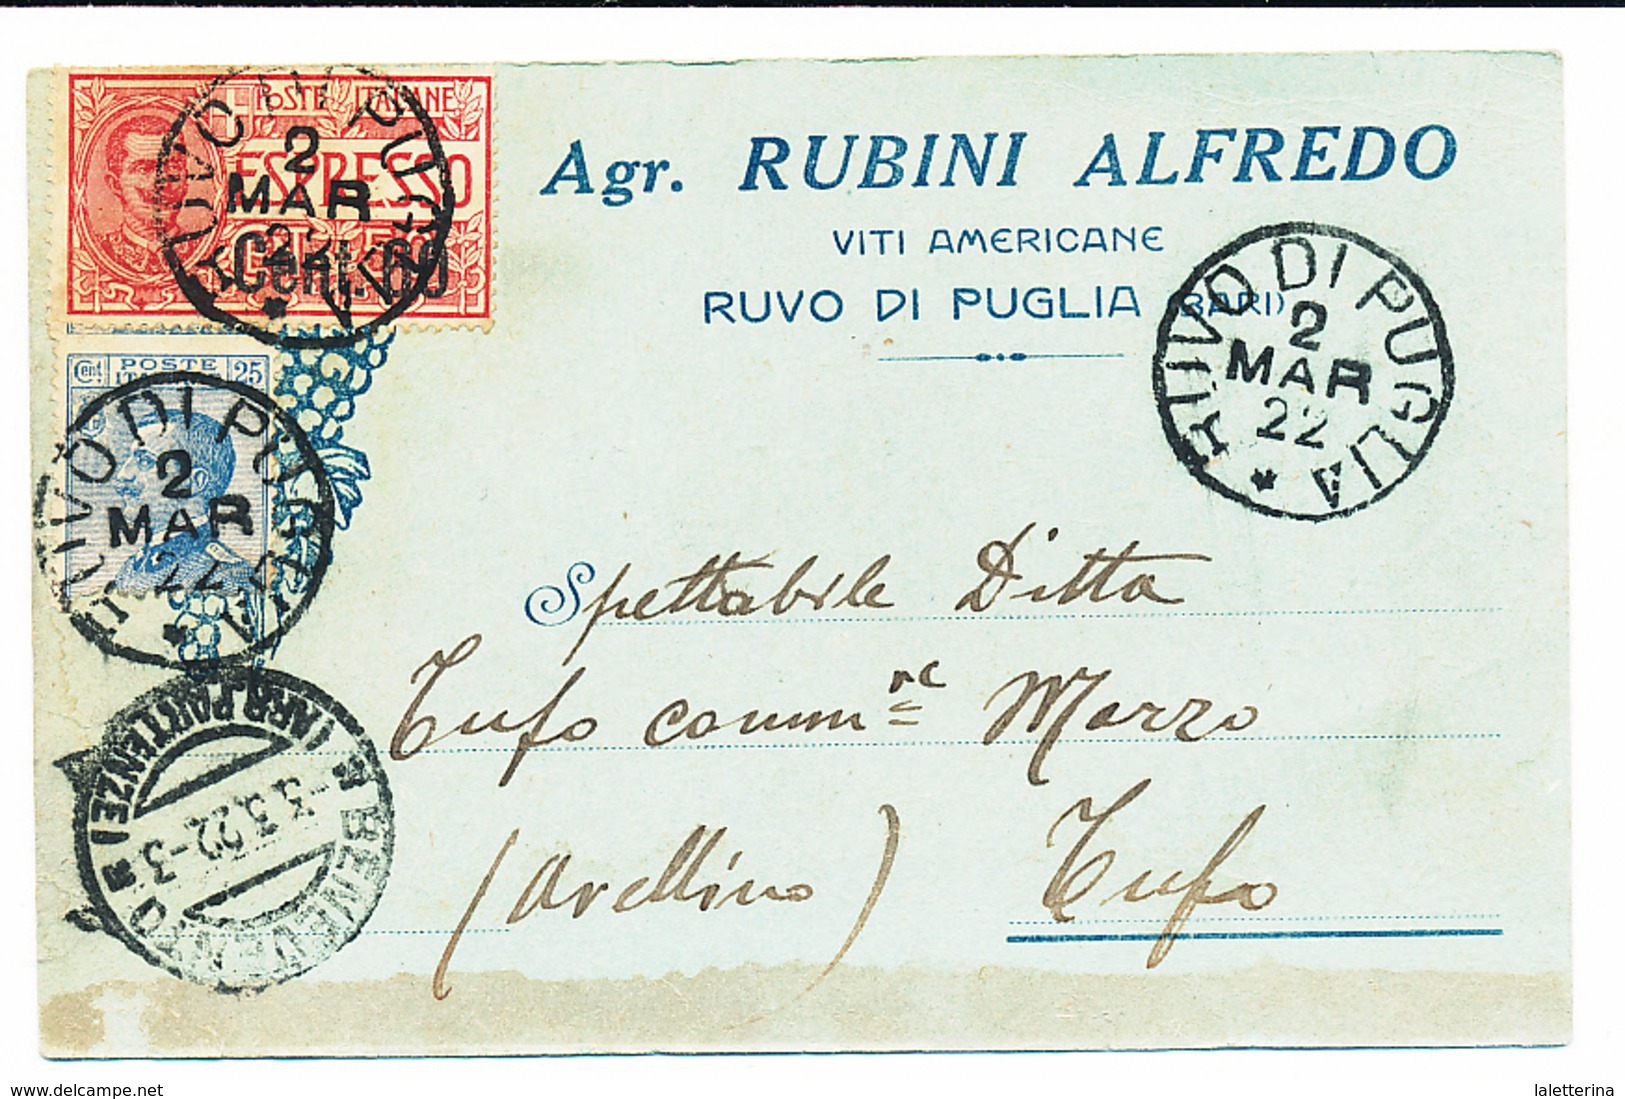 POSTE ITALIANE
ESPRESSO
Cent. 60
Agr. RUBINI ALFREDO
VITI AMERICANE
RUVO DI PUGLIA (BARI)
RUVO DI PUGLIA
2
MAR
22
RUVO DI PUGLIA
2
MAR
22
Cent POSTE ITALIANE 25
RUVO DI PUGLIA
2
MAR
22
Spettabile Ditta
Tufo comm re Marzo
(Avellino) Tufo
BENEVENTO
(ARR. PARTENZE)
-3.3.22-3
delcampe.net
laletterina